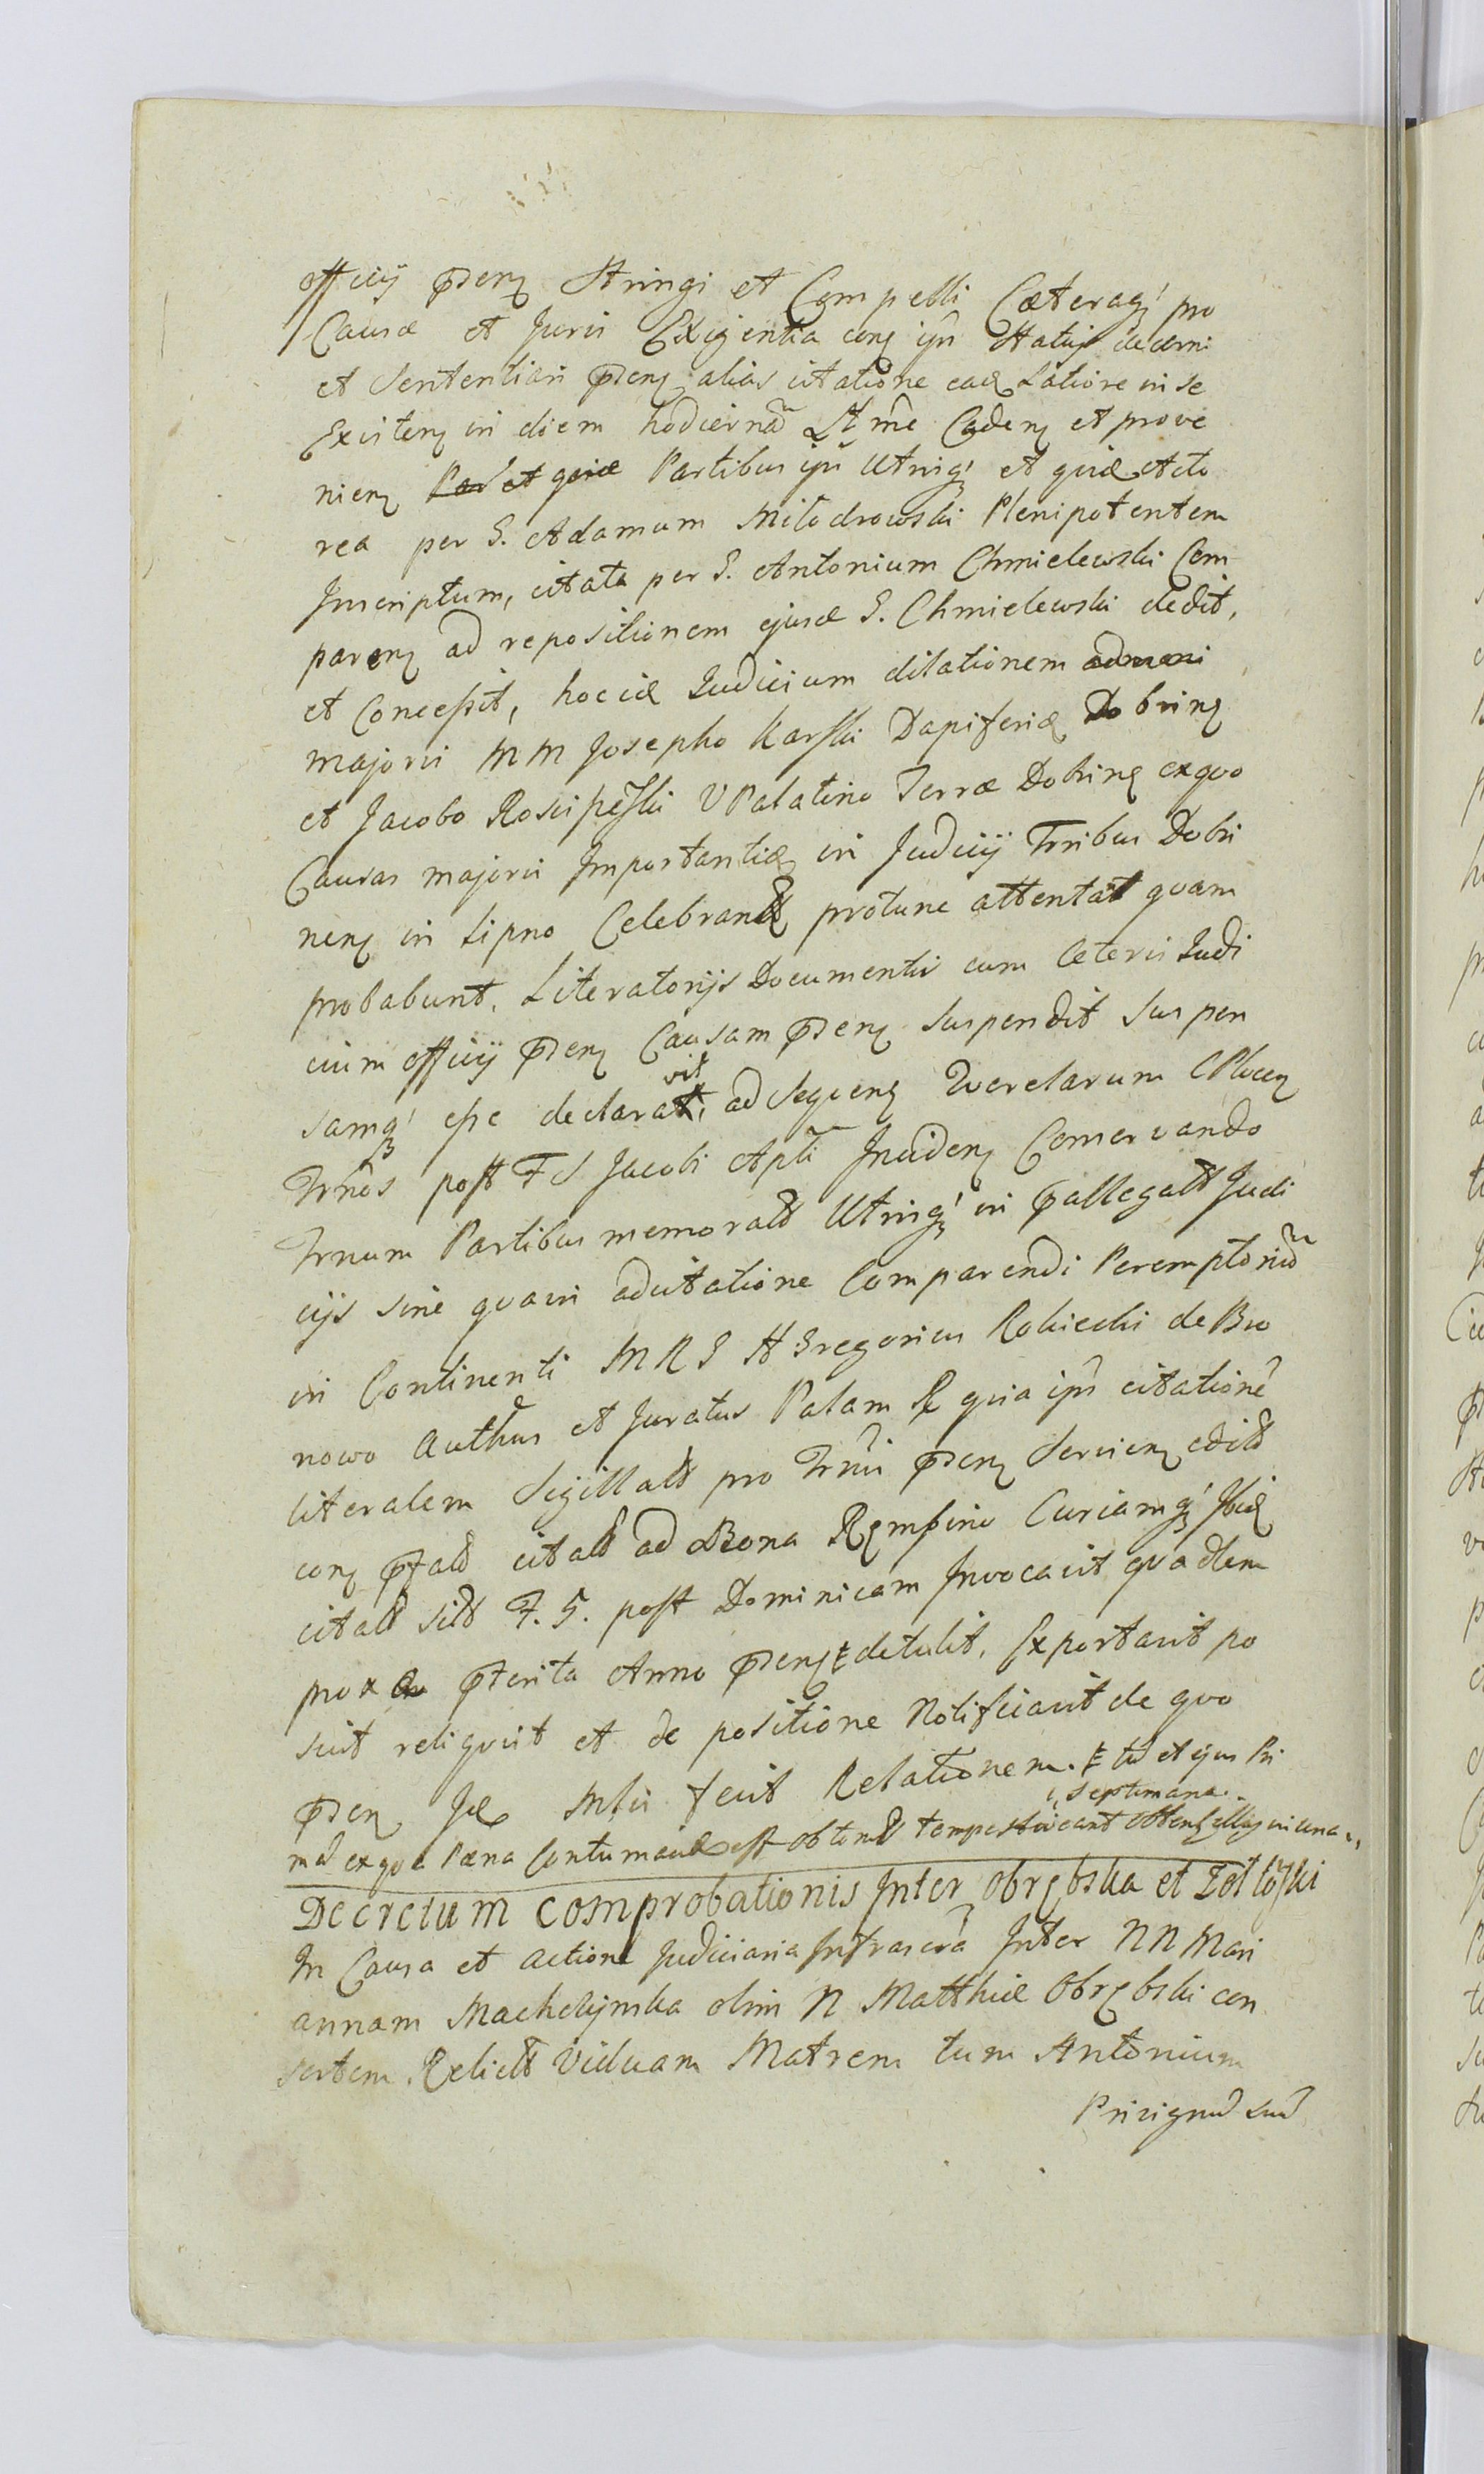 officij psenz Stringi et Compelli Caeteraqz pro
Causae et Juris Exigentia conz ijs Statuj decerni
et Sententiari psenz alias citatione eadz Latiore in se
Existenz in diem hodiernã Lt mẽ Cadenz et prove
nienz Partibus ijs Utrisqz et quidz Acto
rea per G. Adamum Miłodrowski Plenipotentem
Inscriptum, citata per G. Antonium Chmielewski Com
parenz ad repositionem ejusd G. Chmielewski dedit,
et Concessit, hocce Judicium dilationem
majoris MM Josepho Karski Dapiferidz Dobrinz
et Jacobo Rosciszewski VPalatino Terrae Dobrinz exquo
Causas majoris Importantiae in Judicijs Trribus Dobri
nenz in Lipno Celebrand protunc attentat quam
probabunt. Literatorijs Documentis cum Ceteris Judi
cium officij psenz Causam psenz suspendit suspen
samqz esse declaravit, ad sequenz Querelarum CPlocenz
Trnos post F S Jacobi Apli Incidenz Conservando
Trnum Partibus memoratis Utrisqz in pallegatt Judi
cijs sine quavis adcitatione Comparendi Peremptoriũ
in Continenti MRG H Gregorius Rokicki de Bro
nowo Authus et Juratus Palam R quia ijs citationẽ
literalem Sigillatt pro Trnis psenz Servienz editt
conz pfatt citatt ad Bona Rempino Curiamqz Ibidz
citatt sitt F. 5. post Dominicam Invocavit quadtem
prox pterita Anno psenz detulit, Exportavit po
suit reliquit et de positione Notificavit de quo
psen Jud Mlis fecit Relationem. Et td et ejus Pri
septimana
md ex qva Paena Contumaciae est obtend tempestive ant
Decretum comprobationis Inter Obrębska et Żołtoski
In Causa et actione Judiciaria Infrascra Inter NN Mari
annam Machczynska olim N Matthiae Obrębski con
sortem Relictt Viduam Matrem tum Antonium
Privignũ suũ